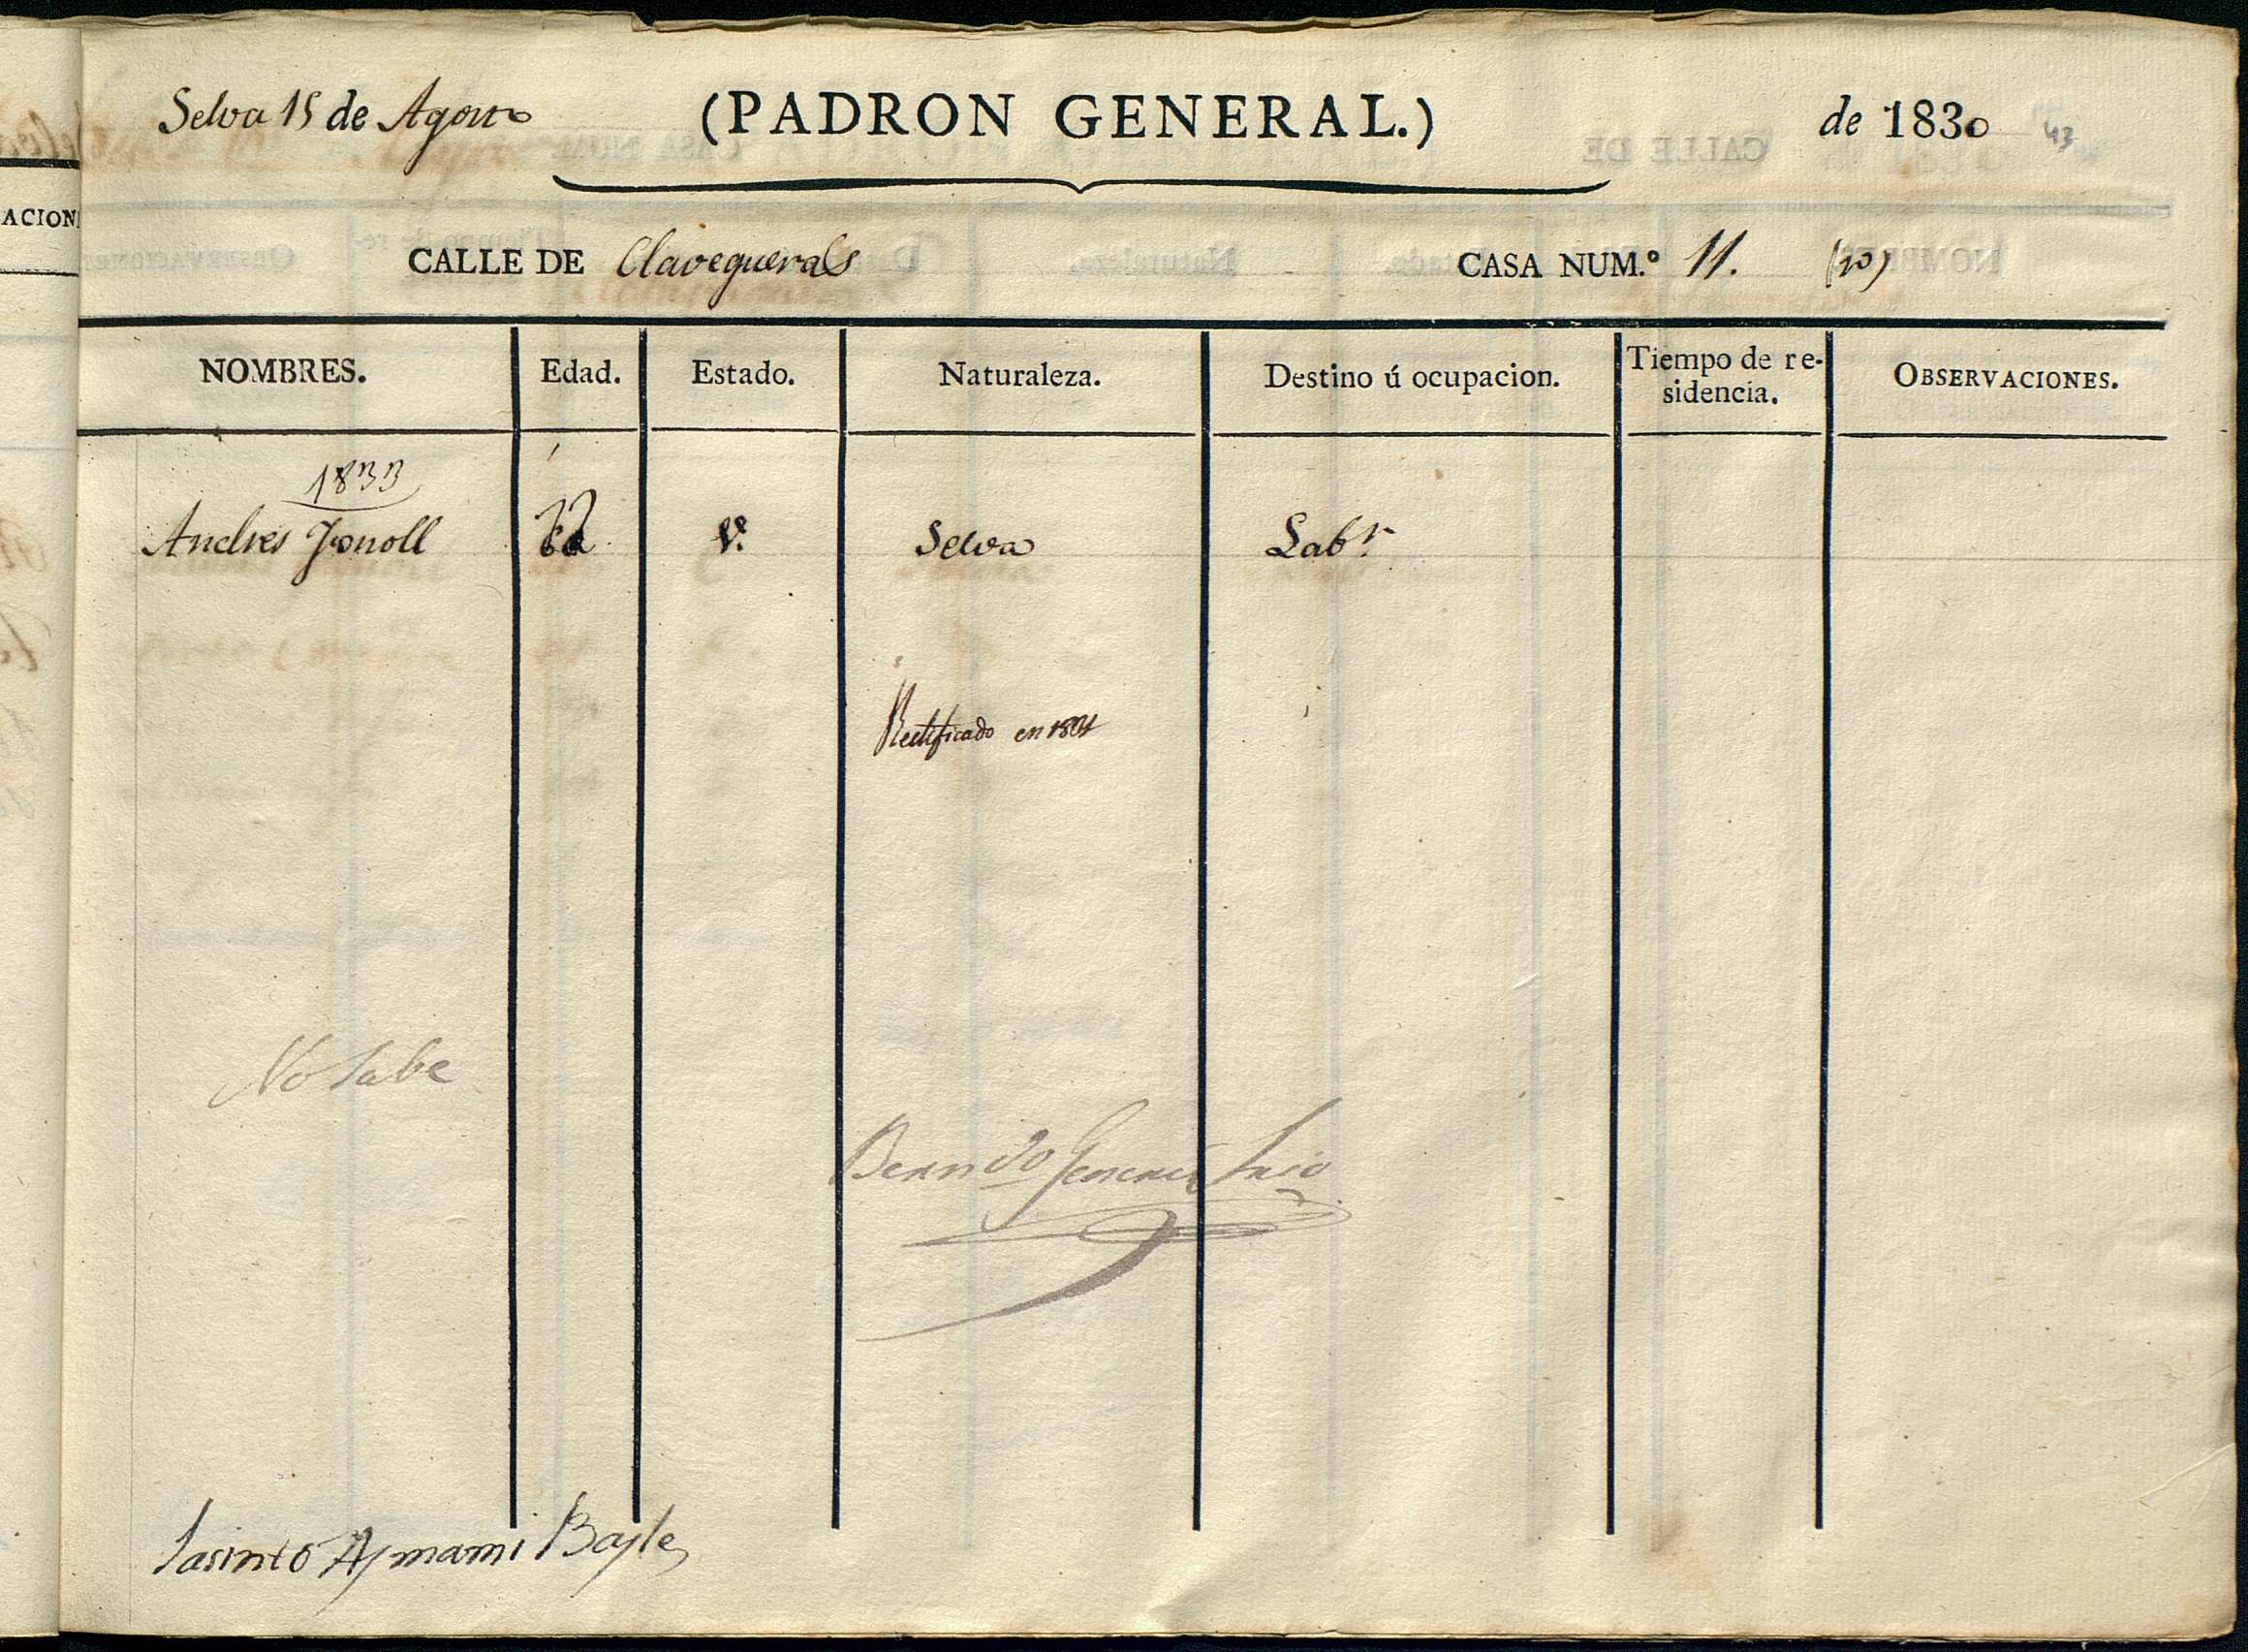 Selva 15 de Agosto (PADRON GENERAL.) de 1830 43
ACION
CALLE DE Clavequerals CASA NUM.º 11. (10)
NOMBRES. Edad. Estado. Naturaleza. Destino ú ocupacion. Tiempo de re-sidencia. OBSERVACIONES.
1833
Andres Fonoll V. Selva Labr.
Rectificado en
No Sabe
Berndo
Jasinto Aymami Bayle